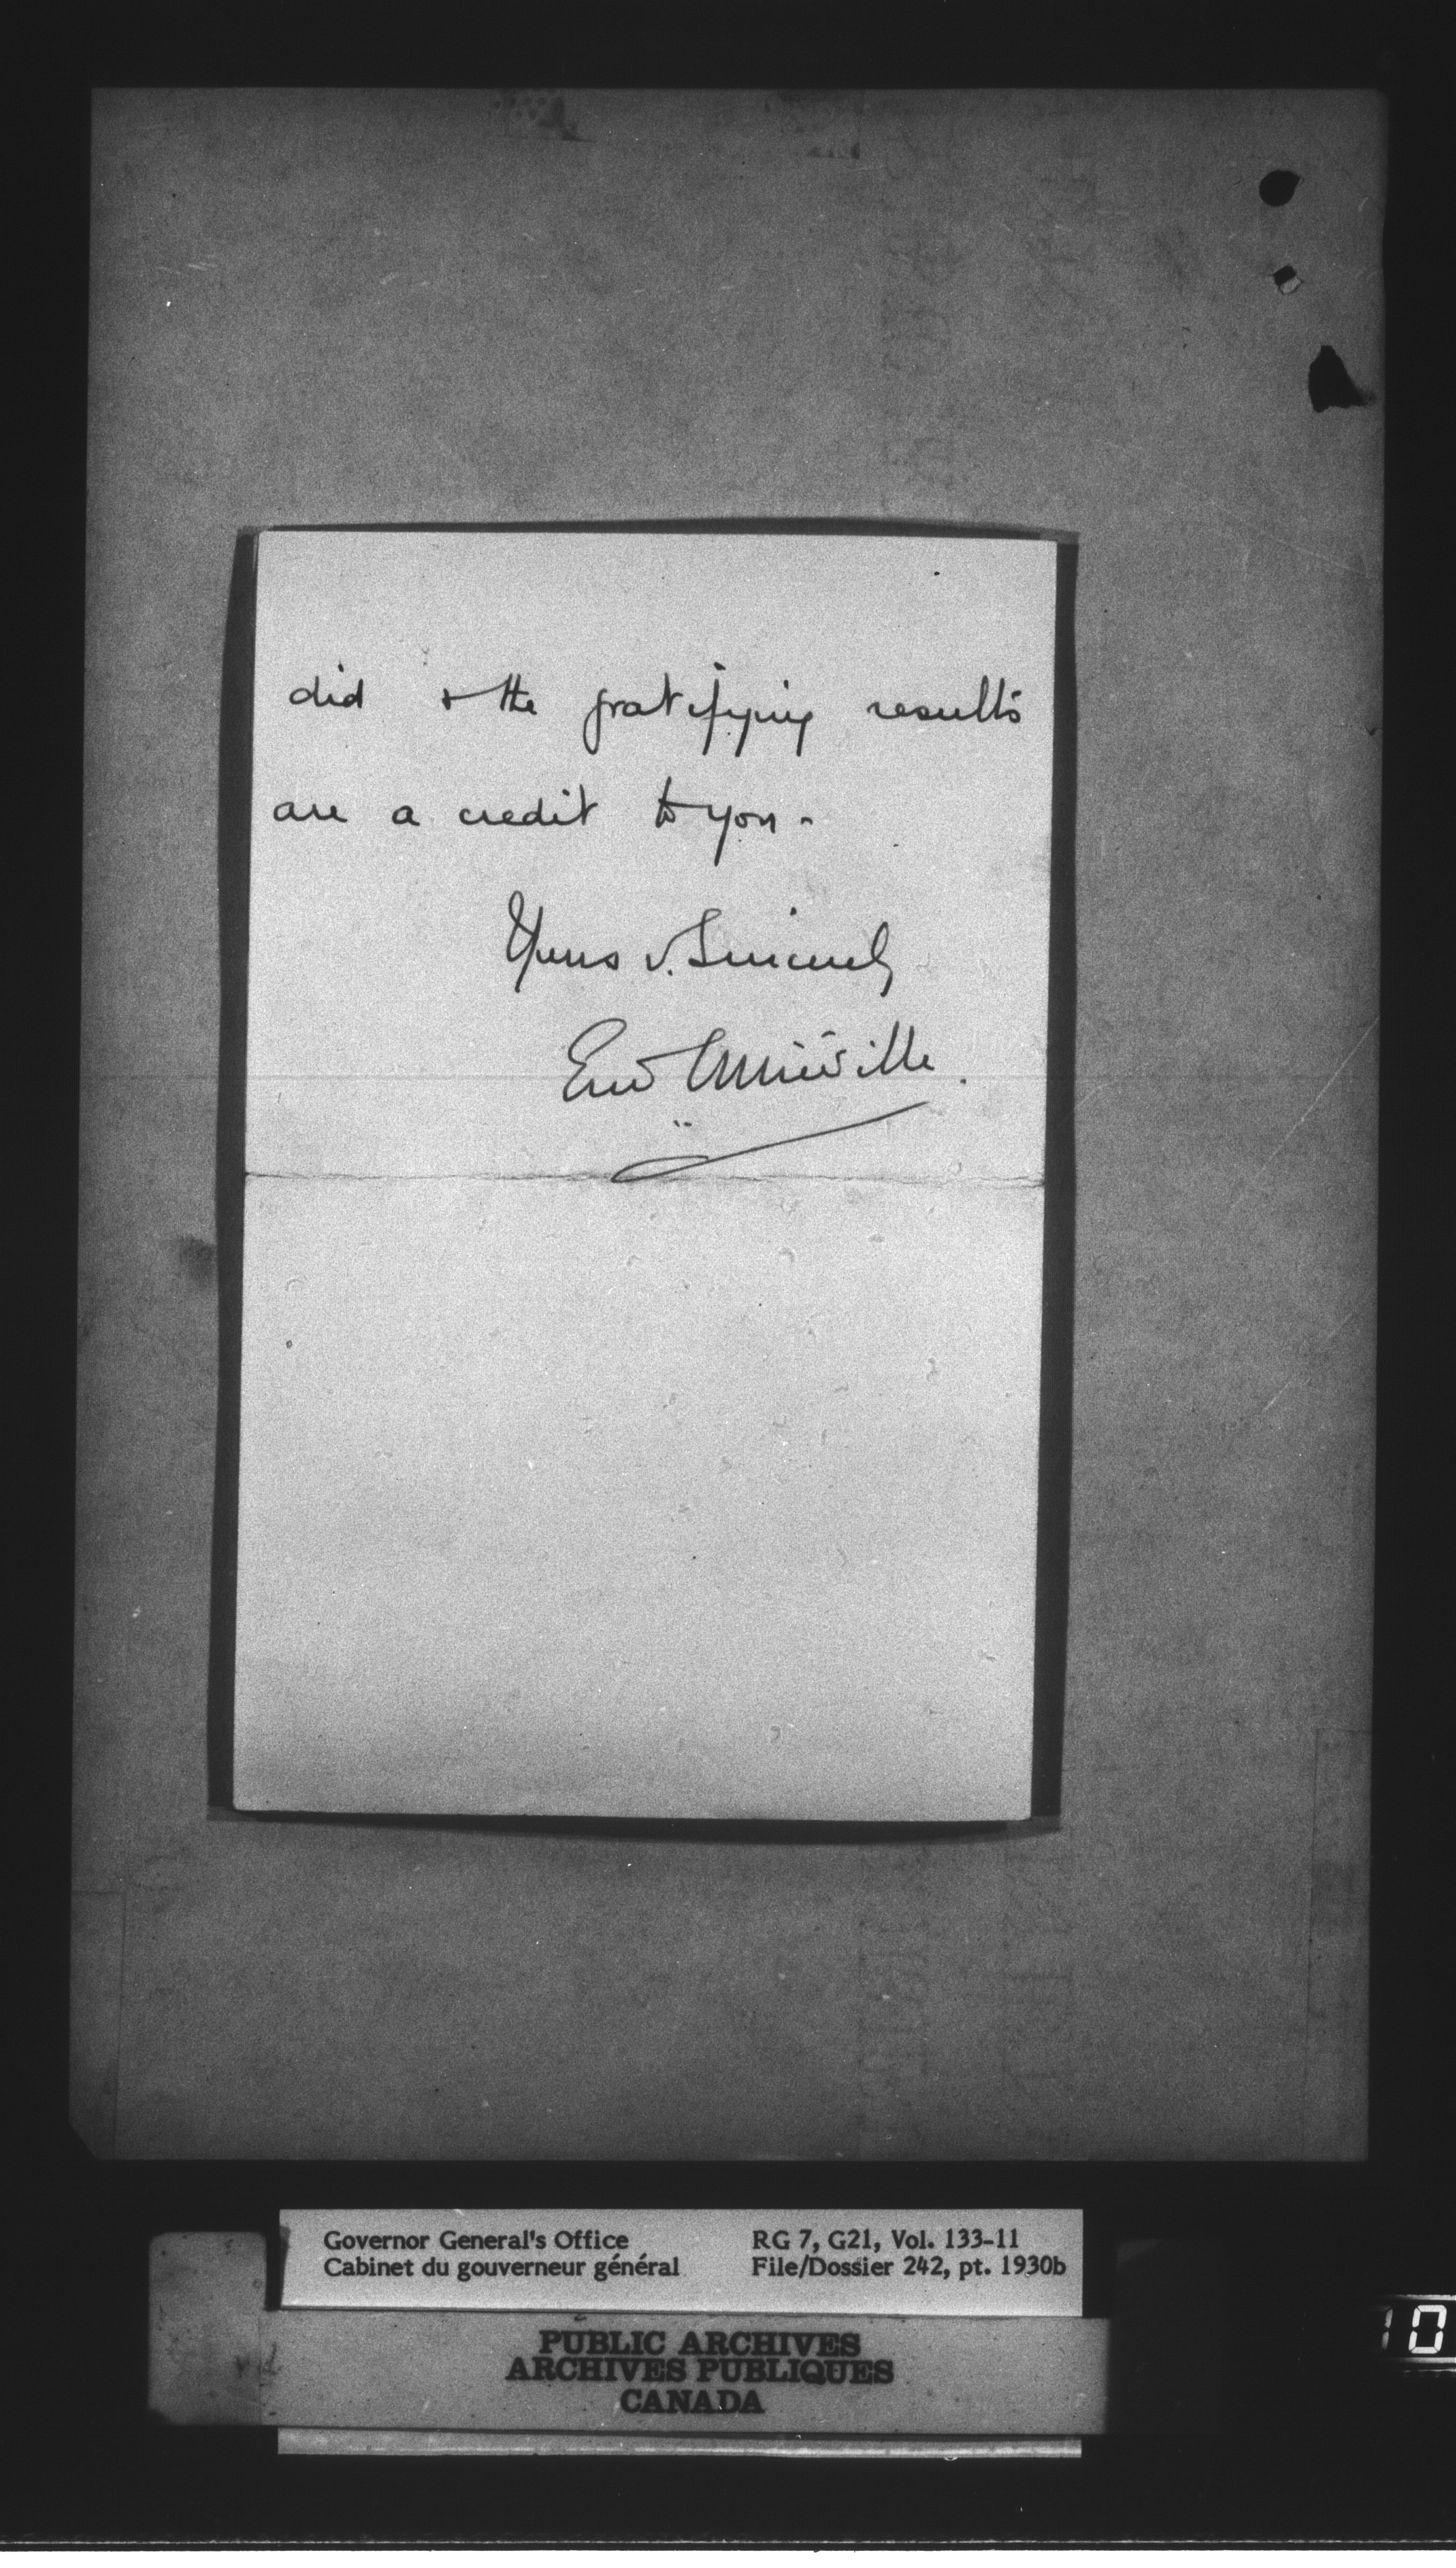 did & the gratifying results
are a credit to you -
Yours v. Sincerely
Eric Miéville.
Governor General's Office
Cabinet du gouverneur général
RG 7, G21, Vol. 133-11
File/Dossier 242, pt. 1930b
PUBLIC ARCHIVES
ARCHIVES PUBLIQUES
CANADA
10